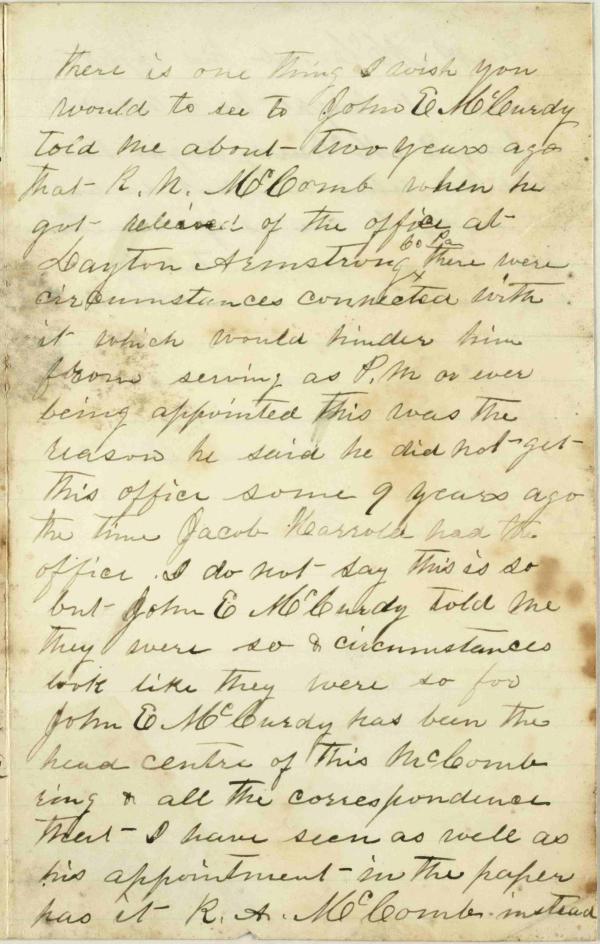 there is one thing I wish you
would to see to John E McCurdy
told me about two years ago
that R. N. McComb when he
got releived of the office at
Layton Armstrong Co Pa there were
circumstances connected with
it which would hinder him
from serving as P.M or ever
being appointed this was the
reason he said he did not get
this office some 9 years ago
the time Jacob Harrold had the
office. I do not say this is so
but John E McCurdy told me
they were so & circumstances
look like they were so for
John E McCurdy has been the
head centre of this McComb
ring & all the correspondence
that I have seen as well as
his appointment in the paper
has it R. A. McComb instead